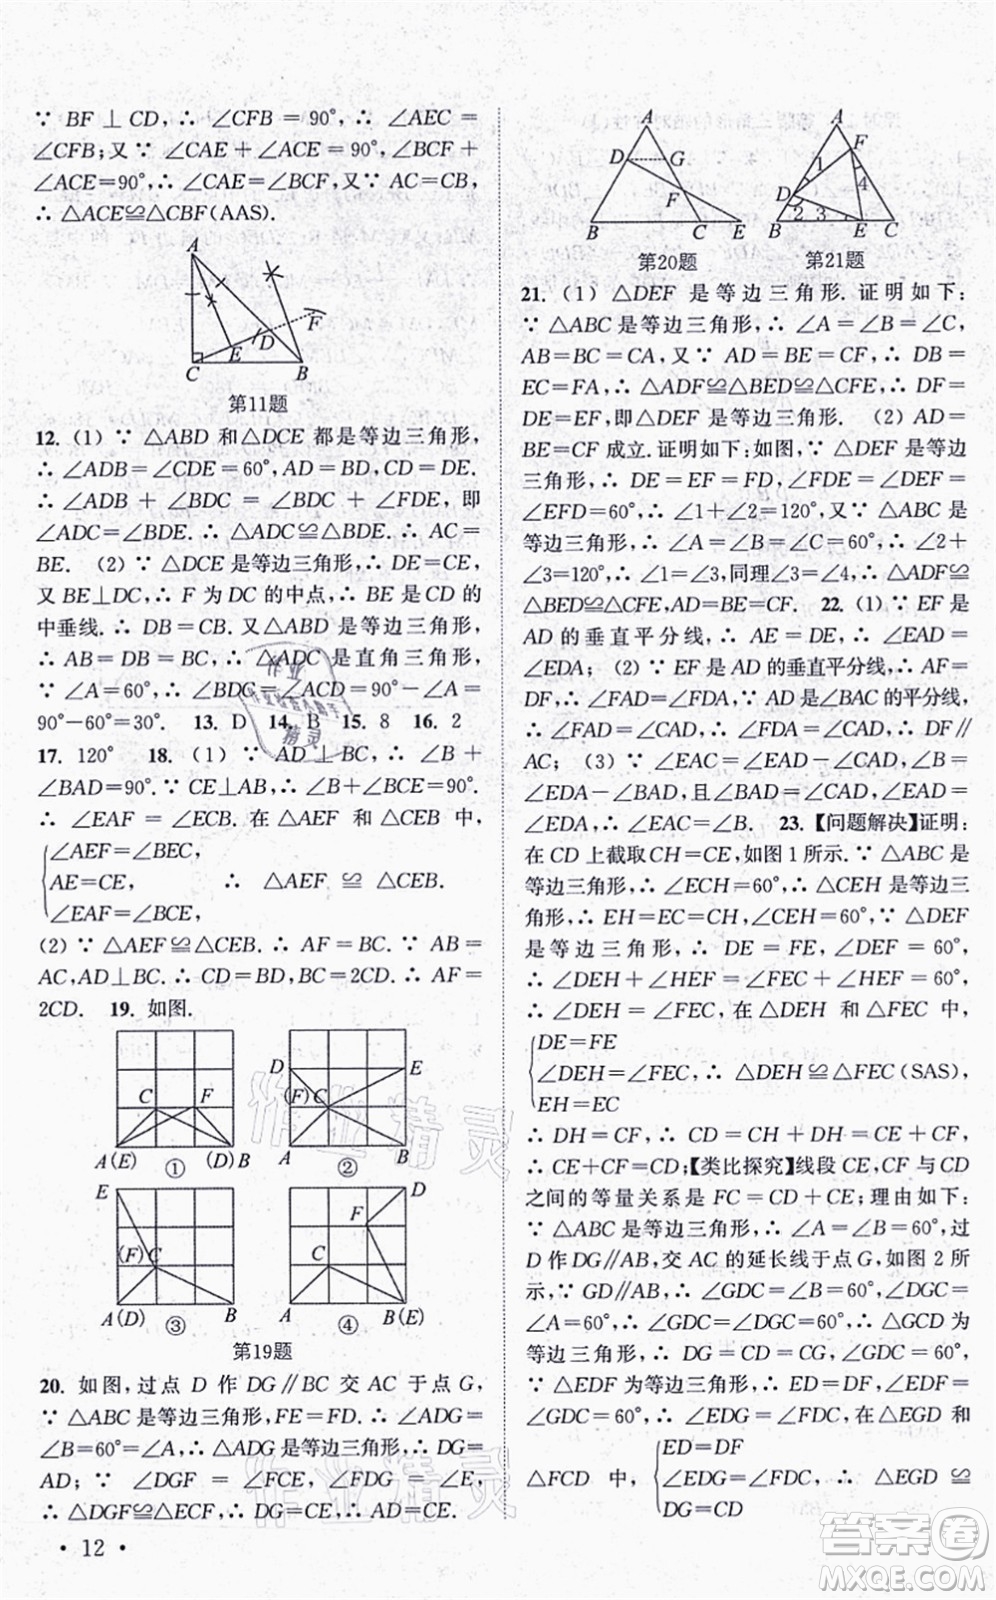 ∵ BF ⊥ CD,∴ ∠CFB = 90°,∴ ∠AEC =
∠CFB;又∵ ∠CAE + ∠ACE=90°,∠BCF +
∠ACE=90°,∴ ∠CAE=∠BCF,又∵ AC=CB,
∴ △ACE≌△CBF(AAS).
A
F
D
E
C
B
第11题
12. (1) ∵ △ABD 和△DCE 都是等边三角形,
∴ ∠ADB=∠CDE=60°,AD=BD,CD=DE.
∴ ∠ADB + ∠BDC = ∠BDC + ∠FDE, 即
∠ADC=∠BDE. ∴ △ADC≌△BDE. ∴ AC=
BE. (2) ∵ △DCE是等边三角形,∴ DE=CE,
又 BE⊥DC,∴ F 为 DC 的中点,∴ BE 是 CD 的
中垂线. ∴ DB = CB. 又∵ △ABD 是等边三角形.
∴ AB = DB = CB,∴ △ADC 是直角三角形,
∵ ∠A=60°,∴ ∠BDC=∠ACD=90°-∠A=
90°-60°=30°. 13. D 14. B 15. 8 16. 2
17. 120° 18. (1) ∵ AD ⊥ BC,∴ ∠B +
∠BAD=90°. ∵ CE⊥AB,∴ ∠B+∠BCE=90°.
∴ ∠EAF = ∠BCE. 在 △AEF 和 △CEB 中,
∠AEF=∠BEC,
AE=CE, ∴ △AEF ≌ △CEB.
∠EAF=∠BCE,
(2) ∵ △AEF≌△CEB. ∴ AF = BC. ∵ AB =
AC,AD⊥BC. ∴ CD=BD,BC=2CD. ∴ AF=
2CD. 19. 如图.
C F
A(E) ① (D)B
D E
(F) C
A ② B
E
(F) C
A(D) ③ B
D
F
C
A ④ B(E)
第19题
20. 如图,过点 D 作 DG∥BC 交 AC 于点 G,
∵ △ABC 是等边三角形,FE=FD. ∴ ∠ADG=
∠B=60°=∠A,∴ △ADG是等边三角形,∴ DG=
AD; ∵ ∠DGF = ∠FCE, ∠FDG = ∠E,
∴ △DGF≌△ECF,∴ DG=CE,∴ AD=CE.
· 12 ·
A
D G
F
B C E
第20题
A
F
1 4
D
2 3
B E C
第21题
21. (1) △DEF 是等边三角形. 证明如下:
∵ △ABC 是等边三角形,∴ ∠A = ∠B = ∠C,
AB=BC=CA,又∵ AD=BE=CF,∴ DB=
EC=FA,∴ △ADF≌△BED≌△CFE,∴ DF=
DE=EF,即△DEF 是等边三角形. (2) AD=
BE=CF 成立. 证明如下: 如图,∵ △DEF 是等边
三角形,∴ DE = EF = FD,∠FDE = ∠DEF =
∠EFD=60°,∴ ∠1+∠2=120°,又∵ △ABC是
等边三角形,∴ ∠A = ∠B = ∠C = 60°,∴ ∠2 +
∠3=120°,∴ ∠1=∠3,同理∠3=∠4,∴ △ADF≌
△BED≌△CFE,AD=BE=CF. 22. (1)∵ EF是
AD 的垂直平分线,∴ AE = DE,∴ ∠EAD =
∠EDA; (2) ∵ EF 是 AD的垂直平分线,∴ AF=
DF,∴ ∠FAD=∠FDA,∵ AD是∠BAC的平分线,
∴ ∠FAD = ∠CAD,∴ ∠FDA = ∠CAD,∴ DF∥
AC; (3) ∵ ∠EAC=∠EAD-∠CAD,∠B=
∠EDA-∠BAD,且∠BAD=∠CAD,∠EAD=
∠EDA,∴ ∠EAC=∠B. 23.【问题解决】证明:
在 CD 上截取CH=CE,如图 1 所示. ∵ △ABC 是
等边三角形,∴ ∠ECH = 60°,∴ △CEH 是等边三
角形,∴ EH=EC=CH,∠CEH=60°,∵ △DEF
是等边三角形,∴ DE = FE, ∠DEF = 60°,
∴ ∠DEH + ∠HEF = ∠FEC + ∠HEF = 60°,
∴ ∠DEH=∠FEC,在 △DEH 和 △FEC 中,
DE=FE
∠DEH = ∠FEC,∴ △DEH ≌ △FEC (SAS),
EH=EC
∴ DH = CF,∴ CD = CH + DH = CE + CF,
∴ CE+CF=CD;【类比探究】线段 CE,CF 与 CD
之间的等量关系是 FC = CD + CE;理由如下:
∵ △ABC是等边三角形,∴ ∠A = ∠B = 60°, 过
D 作 DG∥AB,交 AC 的延长线于点 G,如图 2 所
示,∵ GD∥AB,∴ ∠GDC=∠B=60°,∠DGC=
∠A = 60°,∴ ∠GDC = ∠DGC = 60°,∴ △GCD为
等边三角形,∴ DG = CD = CG,∠GDC = 60°,
∵ △EDF 为等边三角形,∴ ED=DF,∠EDF=
∠GDC=60°,∴ ∠EDG=∠FDC,在 △EGD 和
△FCD 中, ∠EDG = ∠FDC, ∴ △EGD ≌
ED=DF
DG=CD
作业精灵
作业精灵
答案圈
MXQE.COM